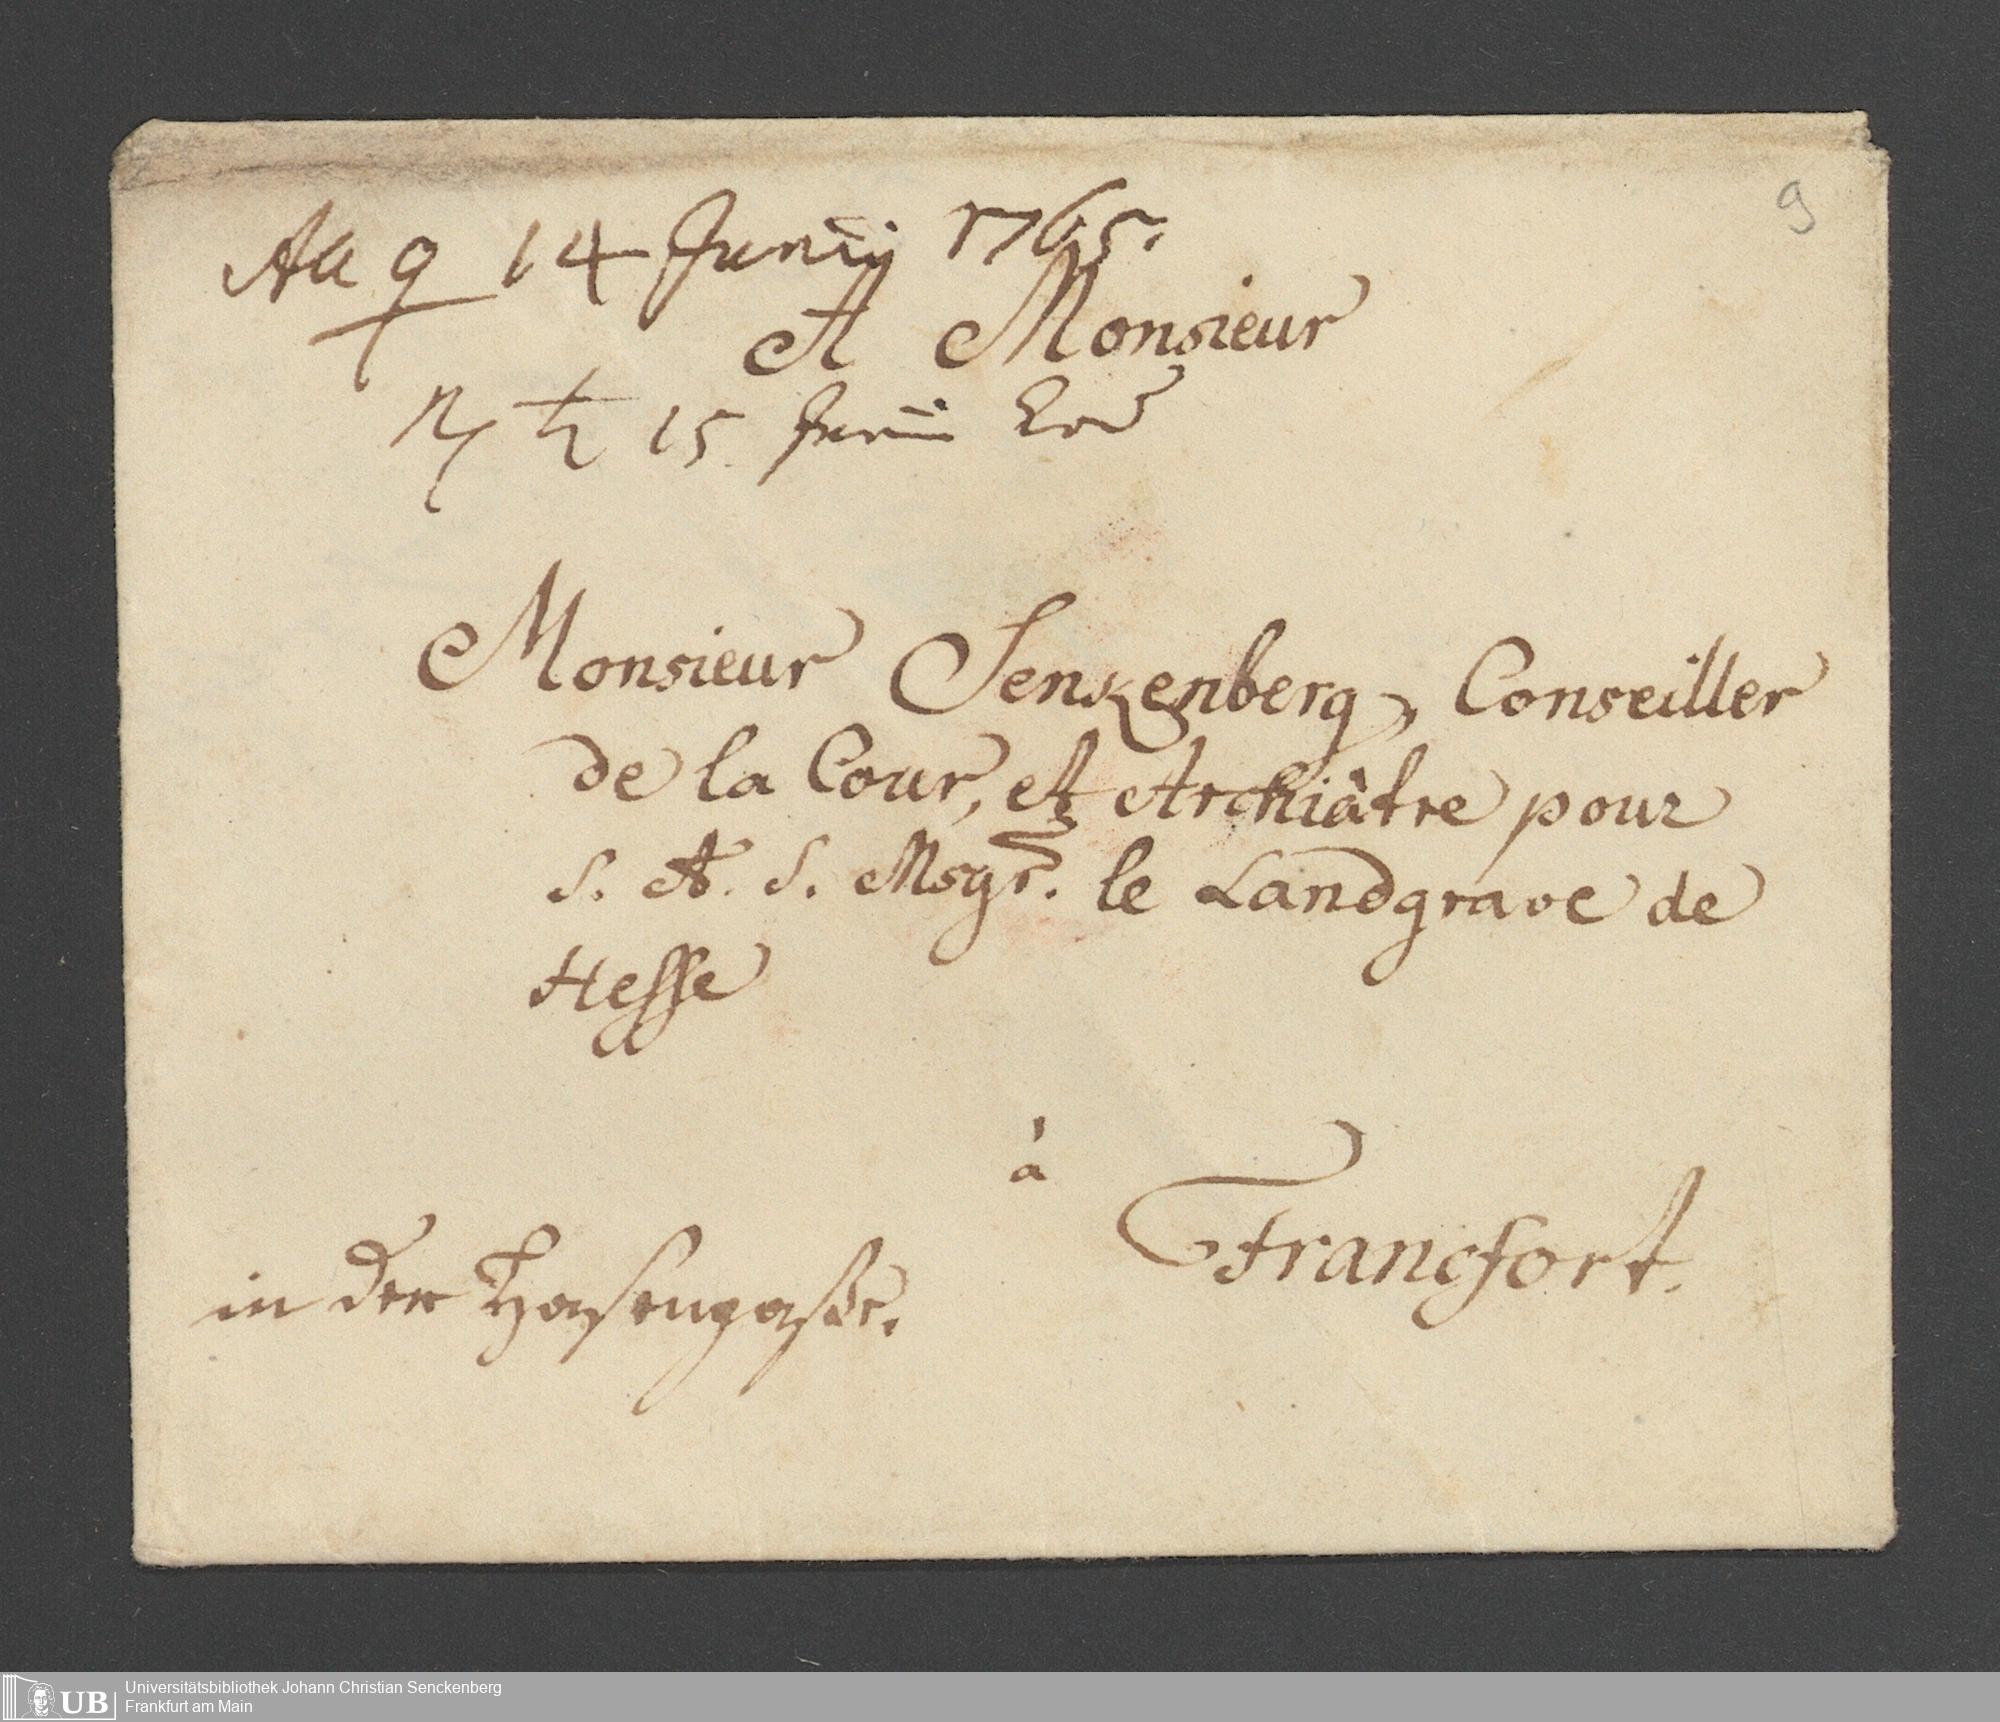 9
Aa ♀ 14 Junij 1765.
A Monsieur
♄ 15 Junii
Monsieur Senkenberg, Conseiller
de la Cour, et Archiâtre pour
S. A. S. Msgr. le Landgrave de
Hesse
à
Francfort.
in der Hasengaße.
UB
Universitätsbibliothek Johann Christian Senckenberg
Frankfurt am Main